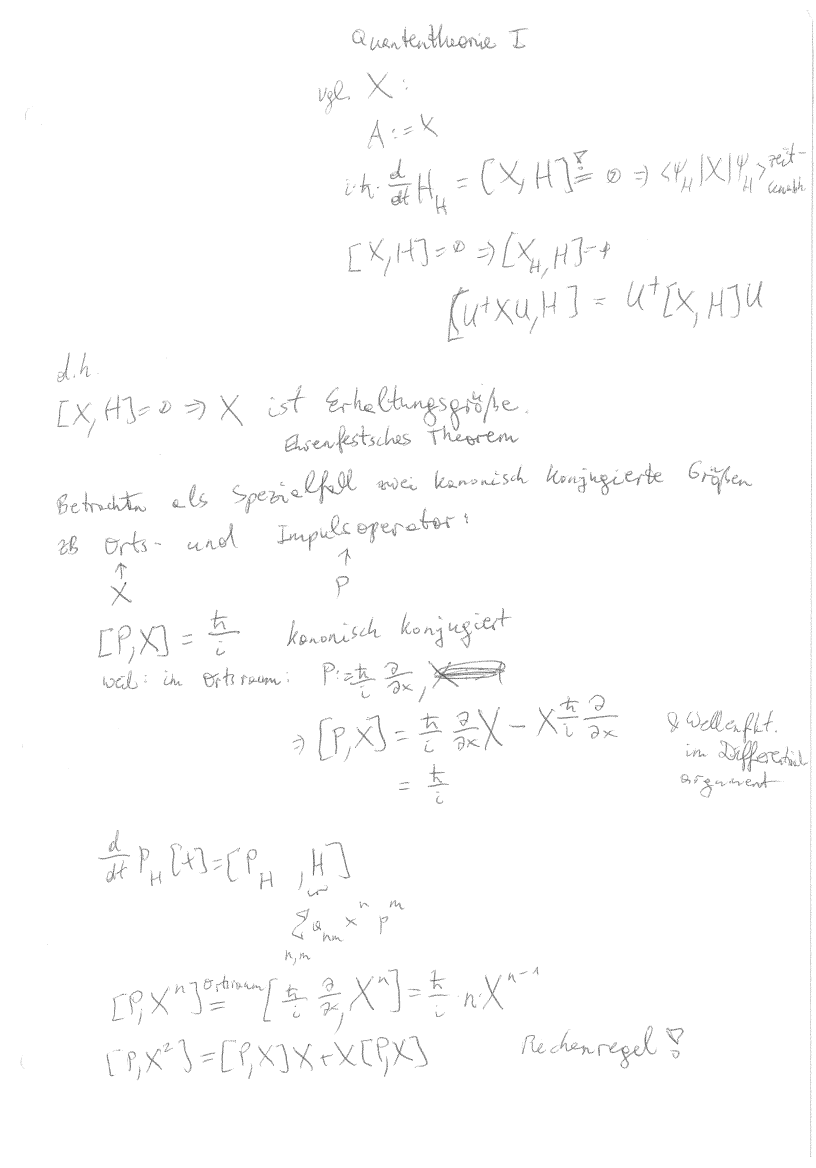 Quantentheorie I
vgl. X:
A:=X
i·ħ · d/dt H_H = [X, H] =! 0 ⇒ <ψ_H|X|ψ_H> zeit-
unabh
[X,H]=0 ⇒ [X_H, H]=
[U†XU, H] = U†[X, H]U
d.h.
[X, H]=0 ⇒ X ist Erhaltungsgröße.
Ehrenfestsches Theorem
Betrachten als Spezialfall zwei kanonisch konjugierte Größen
zB Orts- und Impulsoperator:
↑ ↑
X P
[P,X] = ħ/i kanonisch konjugiert
weil: im Ortsraum: P:=ħ/i ∂/∂x,
⇒ [P,X] = ħ/i ∂/∂x X − X ħ/i ∂/∂x & Wellenfkt.
im Differential
argument
= ħ/i
d/dt P_H [t]=[P_H, H]
∑ a_nm x^n p^m
n,m
[P,X^n] Ortsraum = [ħ/i ∂/∂x, X^n] = ħ/i · n·X^{n-1}
[P,X²] = [P,X]X+X[P,X] Rechenregel!